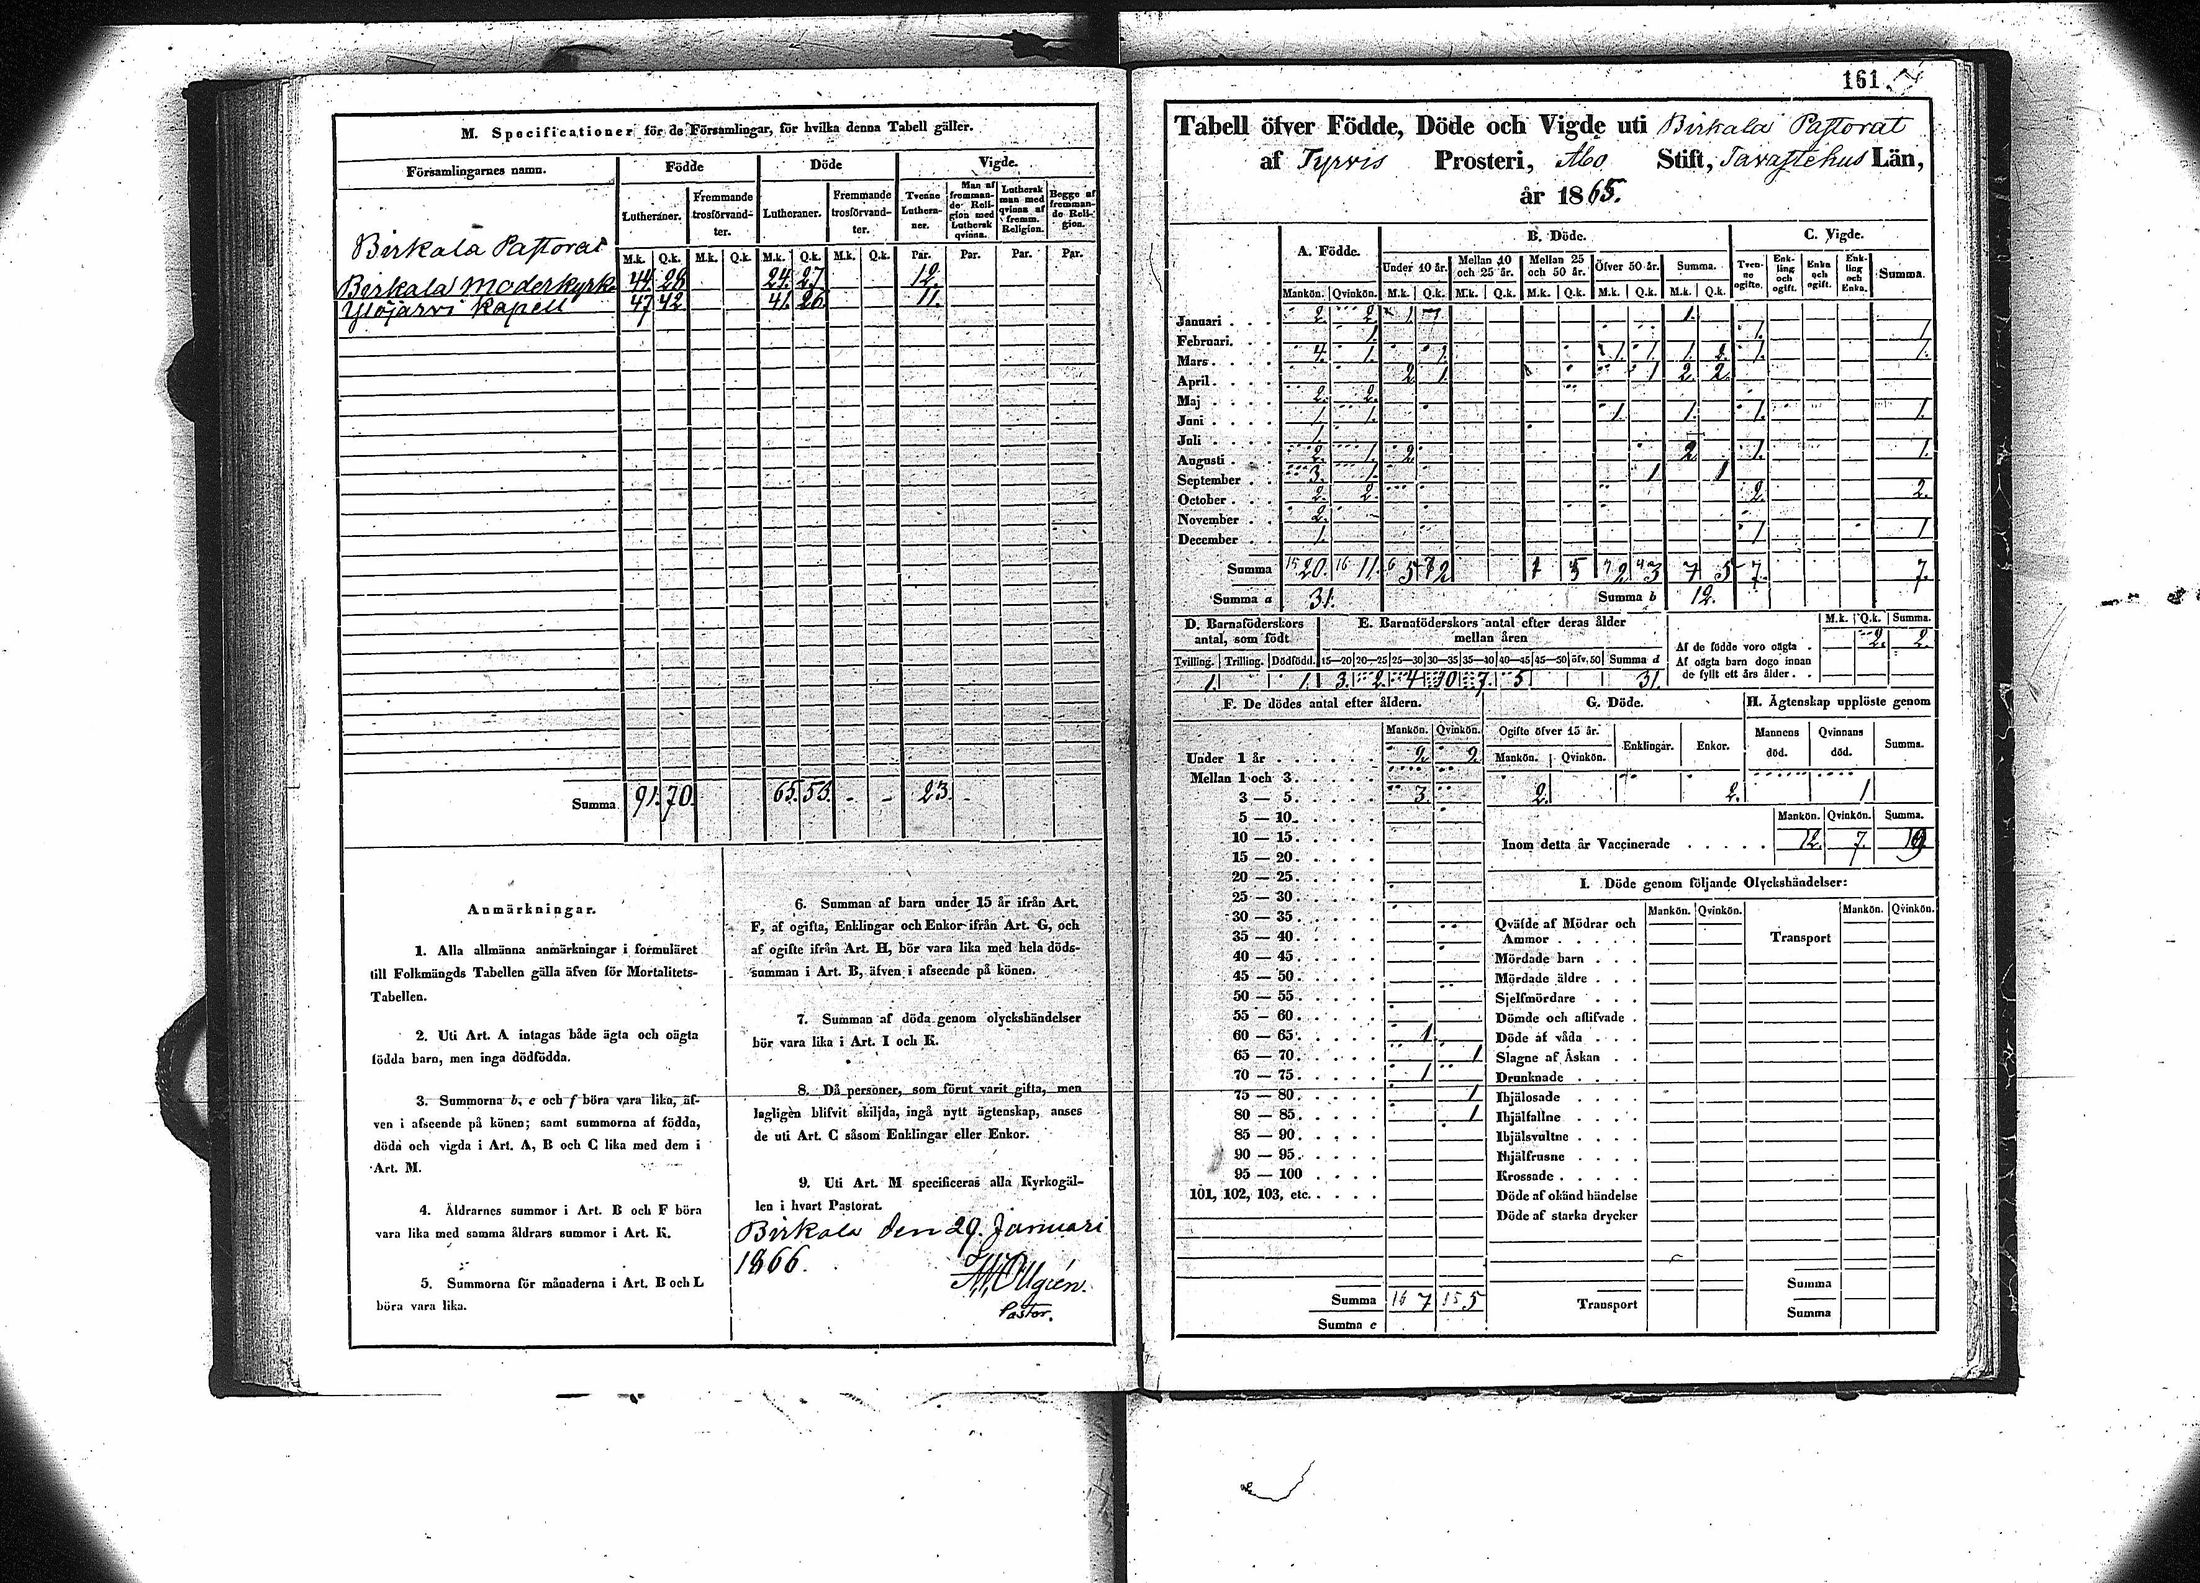 M. Specificationer för de Församlingar, för hvilka denna Tabell gäller.
Församlingarnes namn. Födde Döde Vigde.
Lutheraner. Fremmande trosförvandter. Lutheraner. Fremmande trosförvandter. Tvenne Lutheraner. Man af fremmande Religion med Luthersk qvinna. Luthersk man med qvinna af fremm. Religion. Begge af fremmande Religion.
M.k. Q.k. M.k. Q.k. M.k. Q.k. M.k. Q.k. Par. Par. Par. Par.
Birkala Pastorat
Birkala Moderkyrk. 44. 28 24. 27. 12.
Ylöjärvi Kapell 47 42 41. 26 11.
Summa 91. 70. 65. 53. - - 23. -
Anmärkningar.
1. Alla allmänna anmärkningar i formuläret
till Folkmängds Tabellen gälla äfven för Mortalitets-
Tabellen.
2. Uti Art. A intagas både ägta och oägta
födda barn, men inga dödfödda.
3. Summorna b, e och f böra vara lika, äf-
ven i afseende på könen; samt summorna af födda,
döda och vigda i Art. A, B och C lika med dem i
Art. M.
4. Åldrarnes summor i Art. B och F böra
vara lika med samma åldrars summor i Art. K.
5. Summorna för månaderna i Art. B och L
böra vara lika.
6. Summan af barn under 15 år ifrån Art.
F, af ogifta, Enklingar och Enkor ifrån Art. G, och
af ogifte ifrån Art. H, bör vara lika med hela döds-
summan i Art. B, äfven i afseende på könen.
7. Summan af döda genom olyckshändelser
bör vara lika i Art. I och K.
8. Då personer, som förut varit gifta, men
lagligen blifvit skiljda, ingå nytt ägtenskap, anses
de uti Art. C såsom Enklingar eller Enkor.
9. Uti Art. M specificeras alla Kyrkogäl-
len i hvart Pastorat.
Birkala den 29. Januari
1866.
Pastor.
161.
Tabell öfver Födde, Döde och Vigde uti Birkala Pastorat
af Tyrvis Prosteri, Åbo Stift, Tavastehus Län,
år 1865.
A. Födde. B. Döde. C. Vigde.
Under 10 år. Mellan 10 och 25 år. Mellan 25 och 50 år. Öfver 50 år. Summa. Tvenne ogifte. Enkling och ogift. Enka och ogift. Enkling och Enka. Summa.
Mankön. Qvinkön. M.k. Q.k. M.k. Q.k. M.k. Q.k. M.k. Q.k. M.k. Q.k.
Januari 2. 2 1 1.
Februari. 1. 1. 1
Mars 4. 1. 1. 1. 1. 1. 1. 1.
April 2 1. 1 2. 2.
Maj 2. 2.
Juni 1. 1. 1. 1. 1. 1.
Juli 1.
Augusti 2. 1. 2. 2. 1. 1.
September 3. 1. 1 1
October 2. 2. 2. 2.
November 2.
December 1. 1 1
Summa 20. 11. 5 2 2 3 7 5 7. 7.
Summa a 31. Summa b 12.
D. Barnaföderskors antal, som födt E. Barnaföderskors antal efter deras ålder mellan åren M.k. Q.k. Summa.
Tvilling. Trilling. Dödfödd. 15—20 20—25 25—30 30—35 35—40 40—45 45—50 öfv. 50 Summa d
1. 1. 3. 2. 4 10 7. 5 31.
Af de födde voro oägta 2. 2.
Af oägta barn dogo innan
de fyllt ett års ålder
F. De dödes antal efter åldern. G. Döde. H. Ägtenskap upplöste genom
Mankön. Qvinkön. Ogifte öfver 15 år. Enklingar. Enkor. Mannens död. Qvinnans död. Summa.
Mankön. Qvinkön.
2. 2. 1
Under 1 år 2. 2.
Mellan 1 och 3
3 — 5 3.
5 — 10
10 — 15
15 — 20
20 — 25
25 — 30
30 — 35
35 — 40
40 — 45
45 — 50
50 — 55
55 — 60
60 — 65 1.
65 — 70 1
70 — 75 1
75 — 80 1
80 — 85 1
85 — 90
90 — 95
95 — 100
101, 102, 103, etc.
Summa 16 7 15 5
Summa c
Mankön. Qvinkön. Summa.
Inom detta år Vaccinerade 12. 7. 19
I. Döde genom följande Olyckshändelser:
Mankön. Qvinkön. Mankön. Qvinkön.
Qväfde af Mödrar och
Ammor Transport
Mördade barn
Mördade äldre
Sjelfmördare
Dömde och aflifvade
Döde af våda
Slagne af Åskan
Drunknade
Ihjälosade
Ihjälfallne
Ihjälsvultne
Ihjälfrusne
Krossade
Döde af okänd händelse
Döde af starka drycker
Summa
Transport Summa